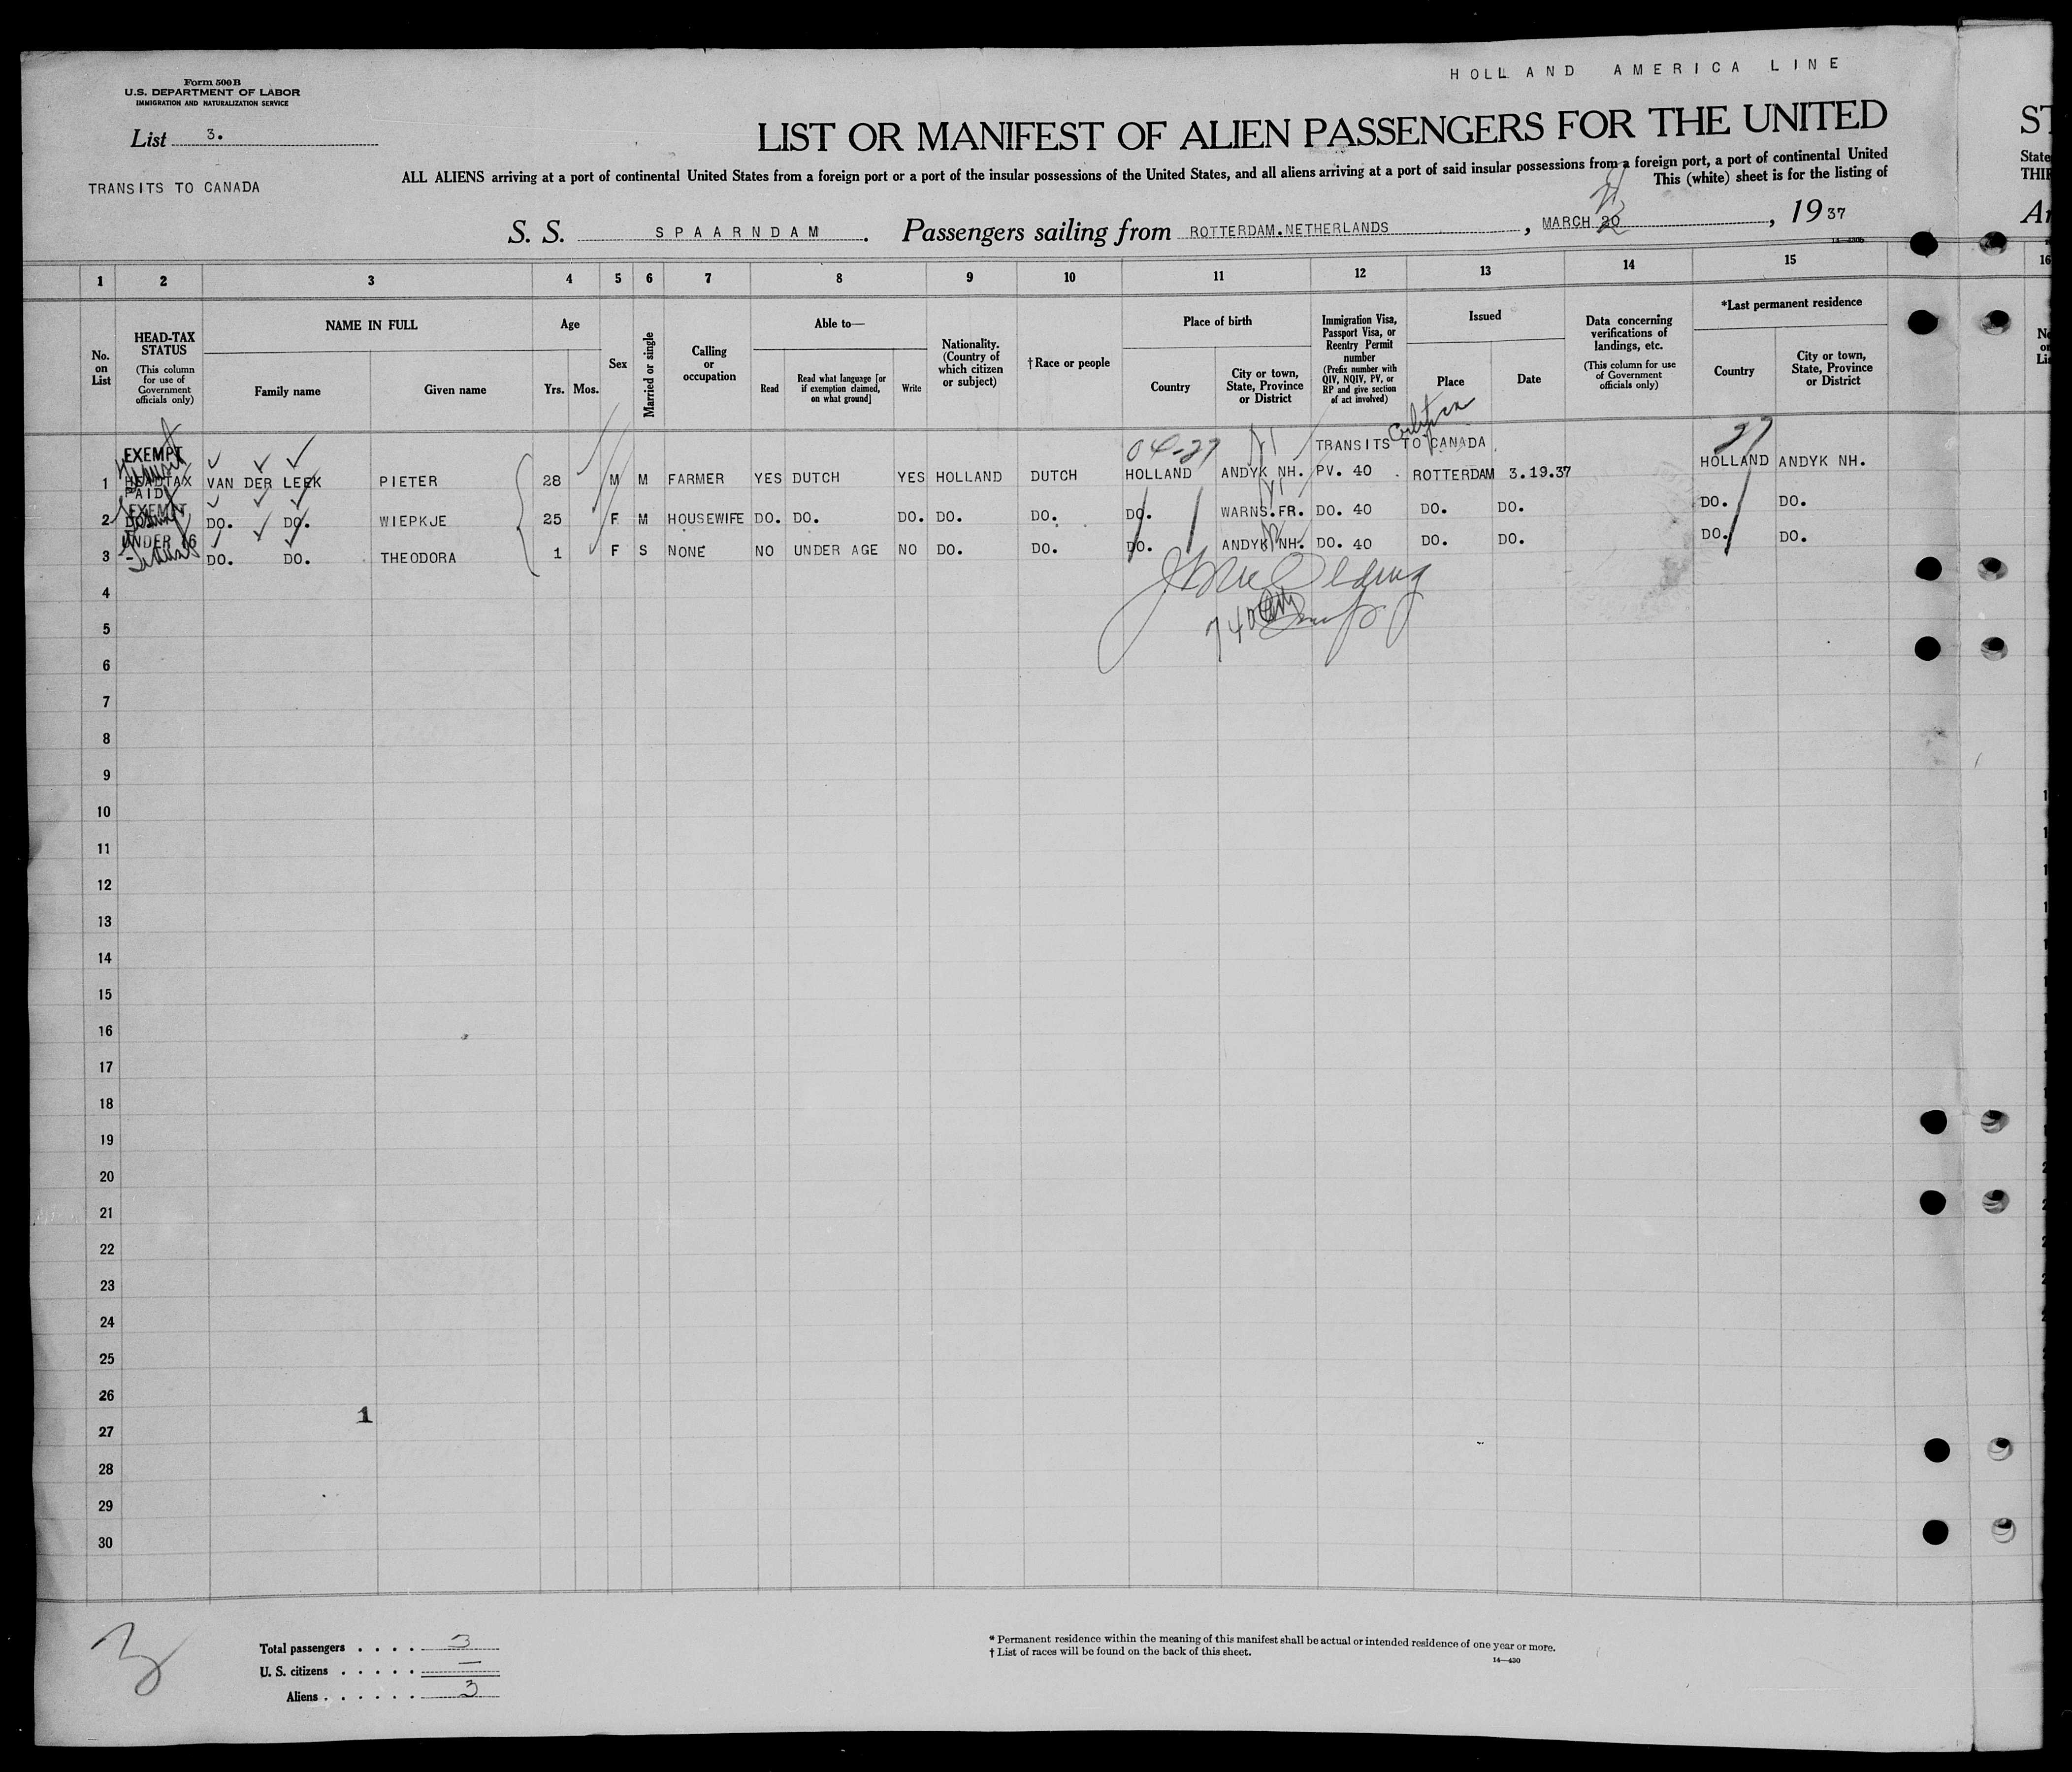 HOLLAND AMERICA LINE
Form 500B
U.S. DEPARTMENT OF LABOR
IMMIGRATION AND NATURALIZATION SERVICE
List 3.
TRANSITS TO CANADA
LIST OR MANIFEST OF ALIEN PASSENGERS FOR THE UNITED
ALL ALIENS arriving at a port of continental United States from a foreign port or a port of the insular possessions of the United States, and all aliens arriving at a port of said insular possessions from a foreign port, a port of continental United
This (white) sheet is for the listing of
S. S. SPAARNDAM. Passengers sailing from ROTTERDAM.NETHERLANDS, MARCH 20 21, 1937
ST
State
THI
Ar
1 2 3 4 5 6 7 8 9 10 11 12 13 14 15 16
No. on List
HEAD-TAX STATUS (This column for use of Government officials only)
NAME IN FULL
Family name
Given name
Age
Yrs. Mos.
Sex
Married or single
Calling or occupation
Able to—
Read
Read what language [or if exemption claimed, on what ground]
Write
Nationality. (Country of which citizen or subject)
†Race or people
Place of birth
Country
City or town, State, Province or District
Immigration Visa, Passport Visa, or Reentry Permit number (Prefix number with QIV, NQIV, PV, or RP and give section of act involved)
Issued
Place
Date
Data concerning verifications of landings, etc. (This column for use of Government officials only)
*Last permanent residence
Country
City or town, State, Province or District
04-27
TRANSITS TO CANADA
27
EXEMPT
1 HEADTAX PAID VAN DER LEEK PIETER 28 M M FARMER YES DUTCH YES HOLLAND DUTCH HOLLAND ANDYK NH. PV. 40 ROTTERDAM 3.19.37 HOLLAND ANDYK NH.
EXEMPT
2 DO. DO. DO. WIEPKJE 25 F M HOUSEWIFE DO. DO. DO. DO. DO. DO. WARNS.FR. DO. 40 DO. DO. DO. DO.
UNDER 16
3 DO. DO. THEODORA 1 F S NONE NO UNDER AGE NO DO. DO. DO. ANDYK NH. DO. 40 DO. DO. DO. DO.
4
5
6
7
8
9
10
11
12
13
14
15
16
17
18
19
20
21
22
23
24
25
26
1
27
28
29
30
3
Total passengers . . . . 3
U. S. citizens . . . . . —
Aliens . . . . . . 3
* Permanent residence within the meaning of this manifest shall be actual or intended residence of one year or more.
† List of races will be found on the back of this sheet.
14—430